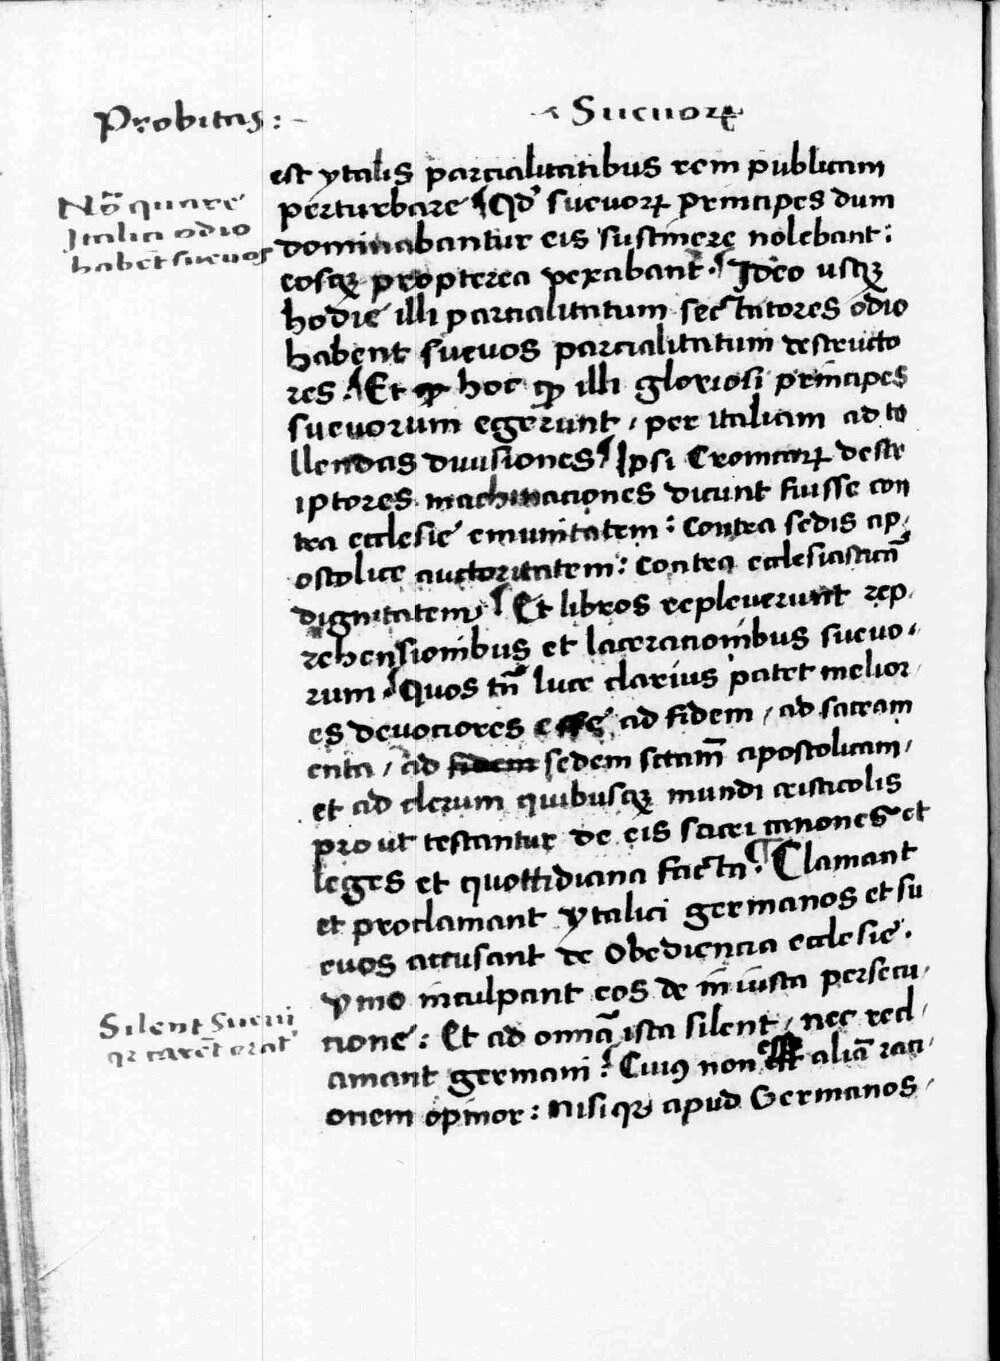 Probitas :
Sueuoꝝ
est ytalis parcialitatibus rem publicam
Nōͣ quare
perturbare ¶ Qđ sueuoꝝ principes dum
Italici odio
dominabantur eis sustinere nolebant :
habēt sueuos
eosqꝫ propterea vexabant . ¶ Ideo usqꝫ
hodie illi parcialitatum sectatores odio
habent sueuos parcialitatum destructo
res . ¶ Et hoc illi gloriosi principes
sueuorum egerunt , per italiam ad to
llendas diuisiones ¶ Ipsi Cronicaꝝ descr
iptores machinaciones dicunt fuisse con
tra ecclesie emunitatem : contra sedis ap,
ostolice auctoritatem : contra ecclesiasticā
dignitatem ¶ Et libros repleuerunt rep,
rehensionibus et laceracionibus sueuo,
rum . ¶ Quos tn̄ luce clarius patet melior,
es deuociores esse ad fidem , ad sacram
enta , ad fidem sedem sctam̄ apostolicam ,
et ad clerum quibusqꝫ mundi cristicolis
pro ut testantur de eis sacri canones et
leges et quottidiana facta . ¶ Clamant
et proclamant ytalici germanos et su
euos accusant de obediencia ecclesie .
ymo inculpant eos de iniusta persecu,
Silent Sueui
cione : Et ad omnia ista silent , nec recl,
qꝛ carēt orat
amant germani ¶ Cuiꝰ non esse aliā raci,
onem opinor : nisi qꝛ apud Germanos ,